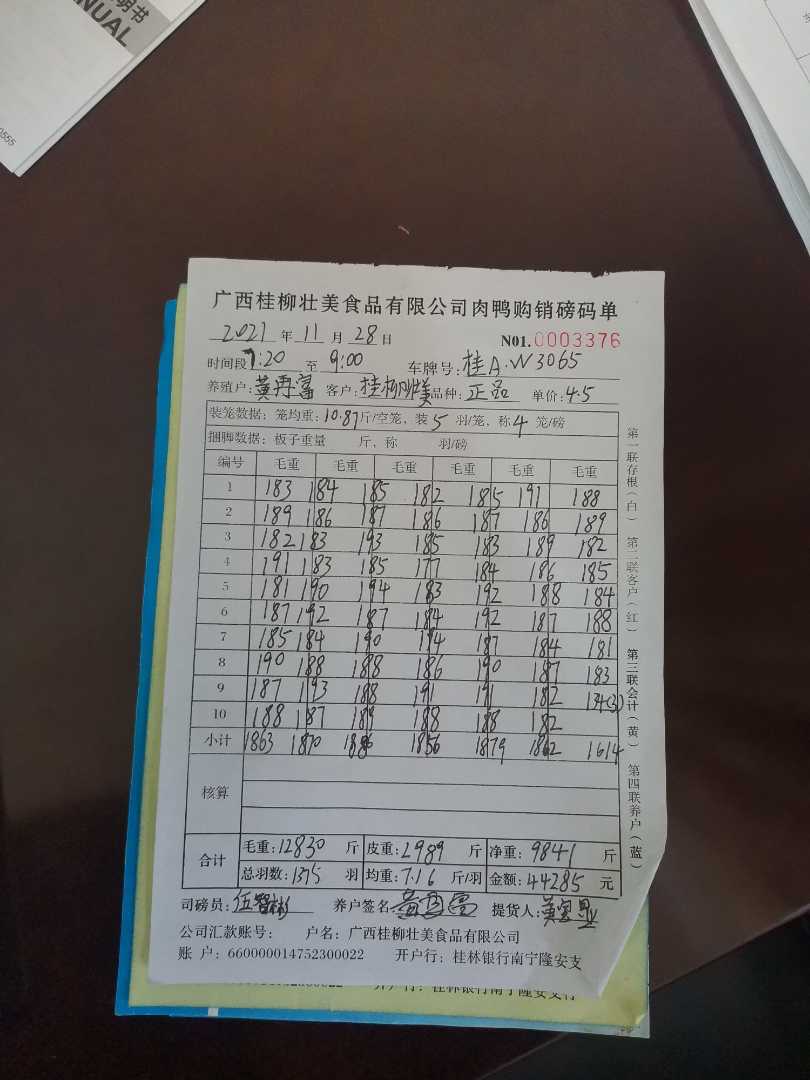 明书
MANUAL
0555
广西桂柳壮美食品有限公司肉鸭购销磅码单
2021 年 11 月 28 日 N01.0003376
时间段 7:20 至 9:00 车牌号: 桂A·W3065
养殖户: 黄再富 客户: 桂柳壮美 品种: 正品 单价: 4.5
装笼数据: 笼均重: 10.87斤/空笼, 装 5 羽/笼, 称 4 笼/磅
捆脚数据: 板子重量 斤, 称 羽/磅
编号 毛重 毛重 毛重 毛重 毛重 毛重
1 183 184 185 182 185 191 188
2 189 186 187 186 187 186 189
3 182 183 193 185 183 189 182
4 191 183 185 177 184 186 185
5 181 190 194 183 192 188 184
6 187 192 187 184 192 187 188
7 185 184 190 194 187 184 181
8 190 188 188 186 190 187 183
9 187 193 188 191 191 182 134(3)
10 188 187 189 188 188 182
小计 1863 1870 1886 1856 1879 1862 1614
核算
合计 毛重: 12830 斤 皮重: 2989 斤 净重: 9841 斤
总羽数: 1375 羽 均重: 7.16 斤/羽 金额: 44285 元
司磅员: 伍智彬 养户签名: 提货人:
公司汇款账号: 户名: 广西桂柳壮美食品有限公司
账 户: 660000014752300022 开户行: 桂林银行南宁隆安支
开户行: 桂林银行南宁隆安支行
第一联存根(白) 第二联客户(红) 第三联会计(黄) 第四联养户(蓝)